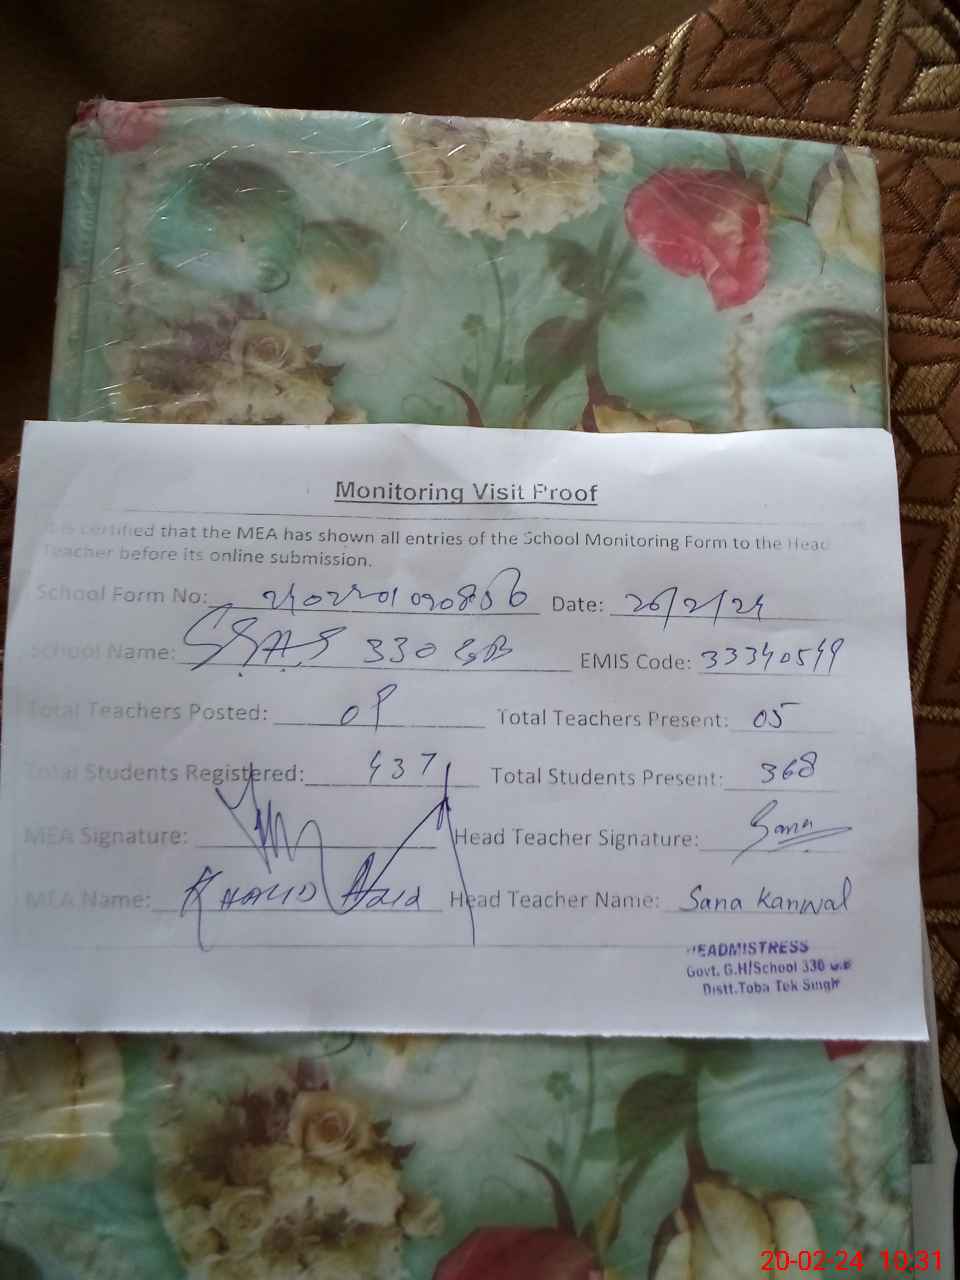 Monitoring Visit Proof
It is certified that the MEA has shown all entries of the School Monitoring Form to the Head
Teacher before its online submission.
School Form No: Date: 20/2/24
School Name: GGHS 330 GB EMIS Code: 33340549
Total Teachers Posted: 09 Total Teachers Present: 05
Total Students Registered: 437 Total Students Present: 368
MEA Signature: Head Teacher Signature: Sana
MEA Name: KHALID Head Teacher Name: Sana Kanwal
HEADMISTRESS
Govt. G.H/School 330 G.B
Distt.Toba Tek Singh
20-02-24 10:31